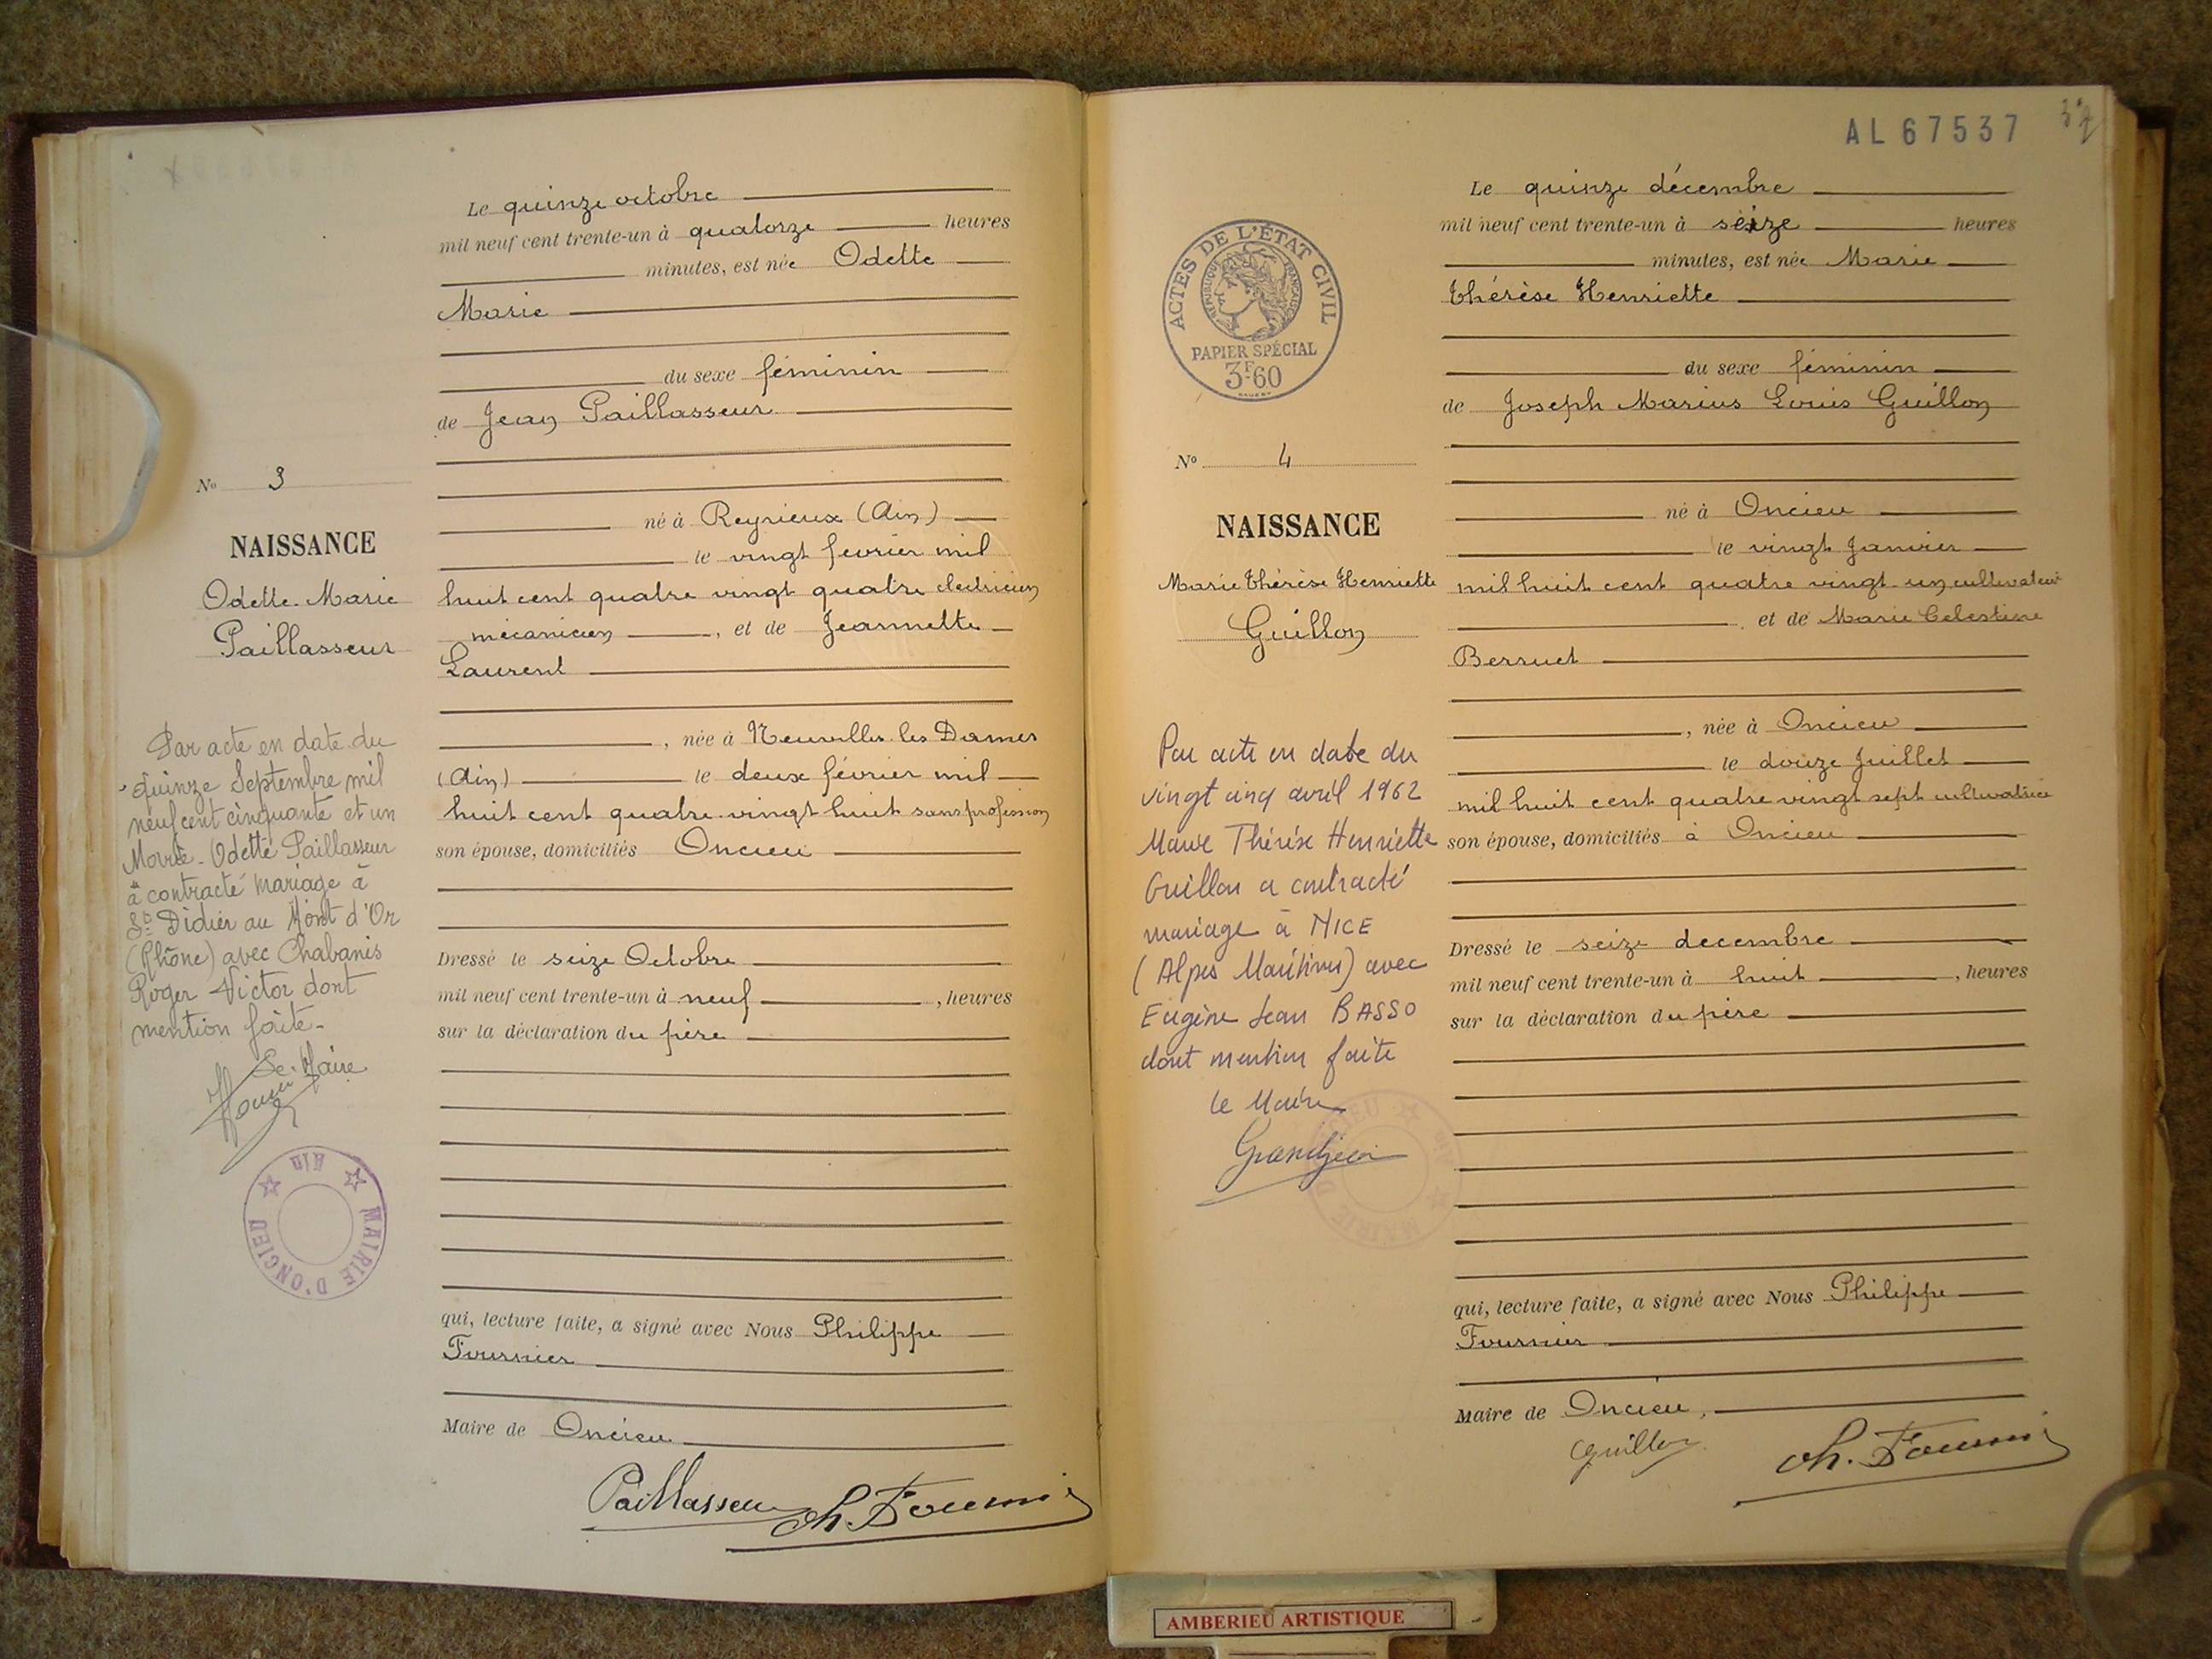 Le quinze octobre
mil neuf cent trente-un à quatorze heures
minutes, est née Odette
Marie
du sexe féminin
de Jean Paillasseur
né à Reyrieux (Ain)
le vingt fevrier mil
huit cent quatre vingt quatre electricien
mécanicien , et de Jeannette
Laurent
, née à Neuvilles les Dames
(Ain) le deux février mil
huit cent quatre-vingt huit sans profession
son épouse, domiciliés Oncieu
Dressé le seize Octobre
mil neuf cent trente-un à neuf , heures
sur la déclaration du père
qui, lecture faite, a signé avec Nous Philippe
Fournier
Maire de Oncieu
Paillasseur Ph. Fournier
No 3
NAISSANCE
Odette-Marie
Paillasseur
Par acte en date du
quinze Septembre mil
neuf cent cinquante et un
Marie-Odette Paillasseur
a contracté mariage à
St Didier au Mont d'Or
(Rhône) avec Chabanis
Roger Victor dont
mention faite-
Le Maire
MAIRIE D'ONCIEU
AIN
AL 67537
37
ACTES DE L'ÉTAT CIVIL
RÉPUBLIQUE FRANÇAISE
PAPIER SPÉCIAL
3F60
No 4
NAISSANCE
Marie Thérèse Henriette
Guillon
Par acte en date du
vingt cinq avril 1962
Marie Thérèse Henriette
Guillon a contracté
mariage à NICE
(Alpes Maritimes) avec
Eugène Jean BASSO
dont mention faite
le Maire
Grandjean
MAIRIE D'ONCIEU
AIN
Le quinze décembre
mil neuf cent trente-un à seize heures
minutes, est née Marie
Thérèse Henriette
du sexe féminin
de Joseph Marius Louis Guillon
né à Oncieu
le vingt Janvier
mil huit cent quatre vingt-un cultivateur
et de Marie Celestine
Berruet
, née à Oncieu
le douze Juillet
mil huit cent quatre vingt sept cultivatrice
son épouse, domiciliés à Oncieu
Dressé le seize decembre
mil neuf cent trente-un à huit , heures
sur la déclaration du père
qui, lecture faite, a signé avec Nous Philippe
Fournier
Maire de Oncieu,
Guillon Ph. Fournier
AMBERIEU ARTISTIQUE